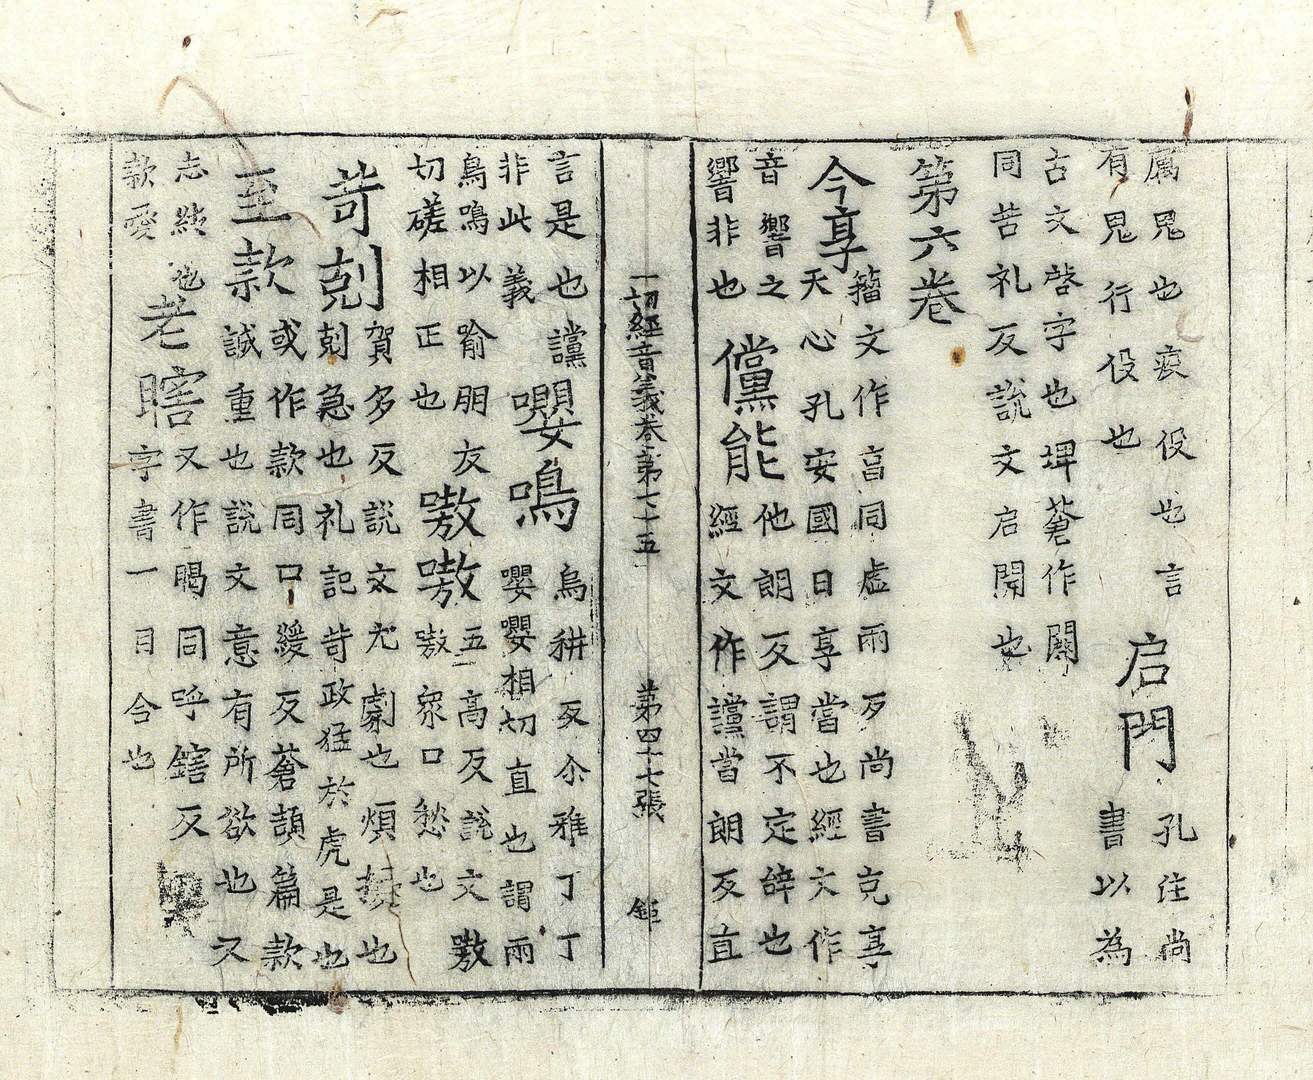 厲鬼也疫役也言
有鬼行役也
启門
孔注尚
書以為
古文啓字也埤蒼作闙
同苦礼反說文启開也
第六卷
今享
籀文作亯同虛雨反尚書克享
天心孔安國曰享當也經文作
音響之
響非也
儻能
他朗反謂不定辞也
經文作讜當朗反直
一切經音義卷第七十五
第四十七張
鉅
言是也讜
非此義
嚶鳴
烏耕反尒雅丁丁
嚶嚶相切直也謂兩
鳥鳴以喻朋友
切磋相正也
嗷嗷
五高反說文嗷
嗷衆口愁也
苛剋
賀多反說文尤劇也煩擾也
剋急也礼記苛政猛於虎是也
至款
或作款同口緩反蒼頡篇款
誠重也說文意有所欲也又
志純也
款愛
老瞎
又作𥈅同呼鎋反
字書一目合也